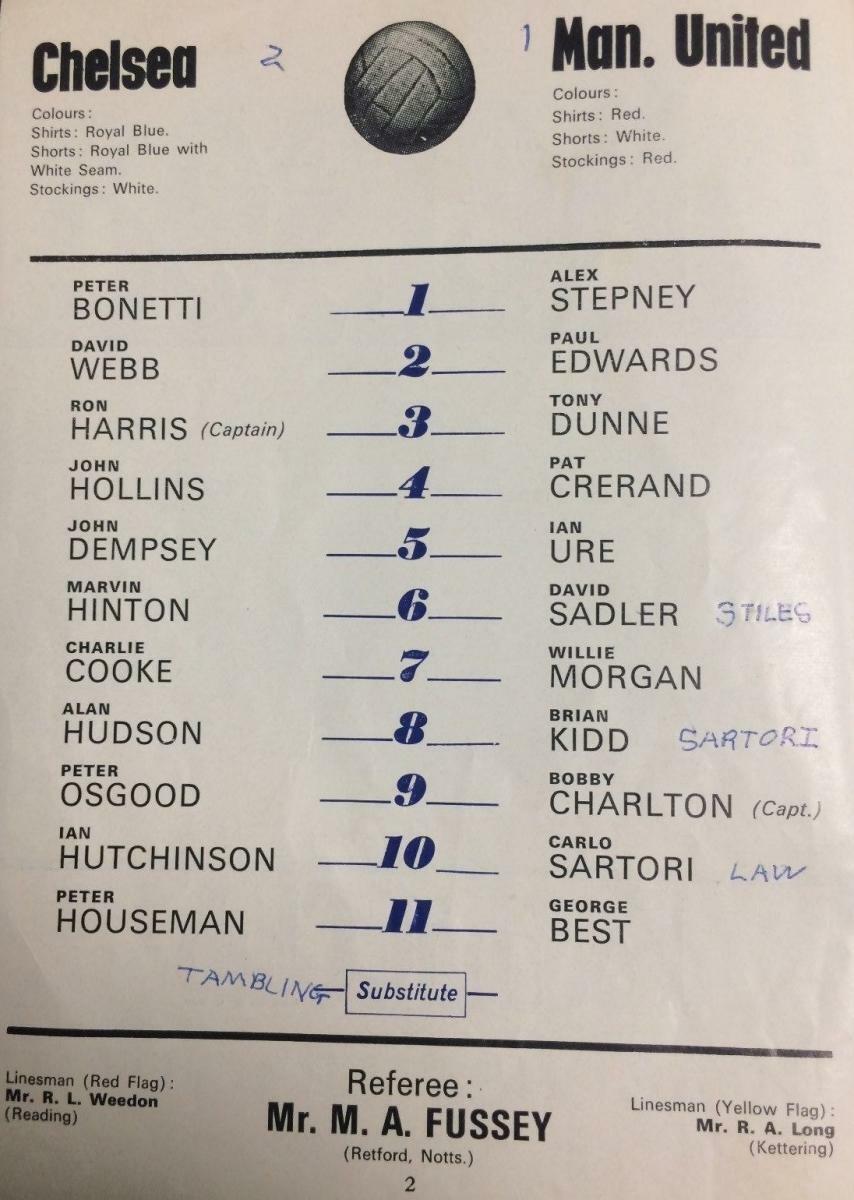 Chelsea 2
Colours:
Shirts: Royal Blue.
Shorts: Royal Blue with
White Seam.
Stockings: White.
1 Man. United
Colours:
Shirts: Red.
Shorts: White.
Stockings: Red.
PETER
BONETTI
1
ALEX
STEPNEY
DAVID
WEBB
2
PAUL
EDWARDS
RON
HARRIS (Captain)
3
TONY
DUNNE
JOHN
HOLLINS
4
PAT
CRERAND
JOHN
DEMPSEY
5
IAN
URE
MARVIN
HINTON
6
DAVID
SADLER STILES
CHARLIE
COOKE
7
WILLIE
MORGAN
ALAN
HUDSON
8
BRIAN
KIDD SARTORI
PETER
OSGOOD
9
BOBBY
CHARLTON (Capt.)
IAN
HUTCHINSON
10
CARLO
SARTORI LAW
PETER
HOUSEMAN
11
GEORGE
BEST
TAMBLING Substitute
Linesman (Red Flag):
Mr. R. L. Weedon
(Reading)
Referee:
Mr. M. A. FUSSEY
(Retford, Notts.)
Linesman (Yellow Flag):
Mr. R. A. Long
(Kettering)
2